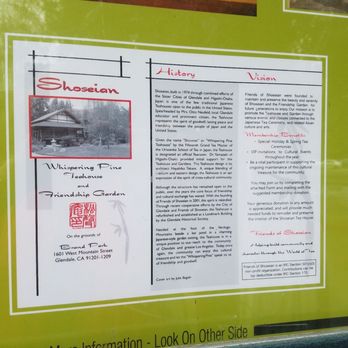 Shoseian
Whispering Pine
Teahouse
and
Friendship Garden
On the grounds of
Brand Park
1601 West Mountain Street
Glendale, CA 91201-1209
History
Shoseian, built in 1974 through combined efforts of
the Sister Cities of Glendale and Higashi-Osaka,
Japan, is one of the few traditional Japanese
Teahouses open to the public in the United States.
Spearheaded by Mrs. Chizu Neufeld, local Glendale
educator and prominent citizen, the Teahouse
represents the spirit of goodwill, lasting peace and
friendship between the people of Japan and the
United States.
Given the name "Shoseian" or "Whispering Pine
Teahouse" by the Fifteenth Grand Tea Master of
the Urasenke School of Tea in Japan, the Teahouse
is designated an official Tearoom. Dr.
Higashi-Osaka provided initial support for the
Teahouse and Gardens. This Teahouse design is by
architect,
eastern and western design, the Teahouse is an
expression of the spirit of cross-cultural community.
Although the structure has remained open to the
public, over the years the core focus of friendship
and cultural exchange has waned. With the founding
of Friends of Shoseian in 2001, the spirit is rekindled.
Through the cooperative efforts by the City of
Glendale and Friends of Shoseian, the Teahouse is
refurbished and established as a Landmark Building
by the Glendale Historical Society.
Nestled at the foot of the Verdugo
Mountains beside a koi pond in a charming
Japanese-style garden setting, the Teahouse is in a
unique position to reach out to the community
of Glendale and greater Los Angeles. Once
again, the community can enjoy this cultural
treasure and let the "Whispering Pine" speak to us
of friendship and goodwill.
Cover art by John Bogosh
Vision
Friends of Shoseian were founded to
maintain and preserve the beauty and serenity
of Shoseian and the Friendship Garden for
future generations to enjoy. Our mission is to
promote the Teahouse and Garden through
various events and classes connected to the
Japanese Tea Ceremony, and related Asian
culture and arts.
Membership Benefits
Special Holiday & Spring Tea
Ceremonies
VIP invitations to Cultural Events
throughout the year
Be a vital participant in supporting the
ongoing maintenance of this cultural
treasure for the community
You may join us by completing the
attached form and mailing with the
suggested membership donation.
Your generous donation in any amount
is appreciated, and will provide much
needed funds to renovate and preserve
the interior of the Shoseian Tea House
Friends of Shoseian
Helping build community and
Friends of Shoseian is an IRS Section 501(c)(3)
non-profit organization. Contributions can be
tax deductible under IRC Section 170.
More Information - Look On Other Side